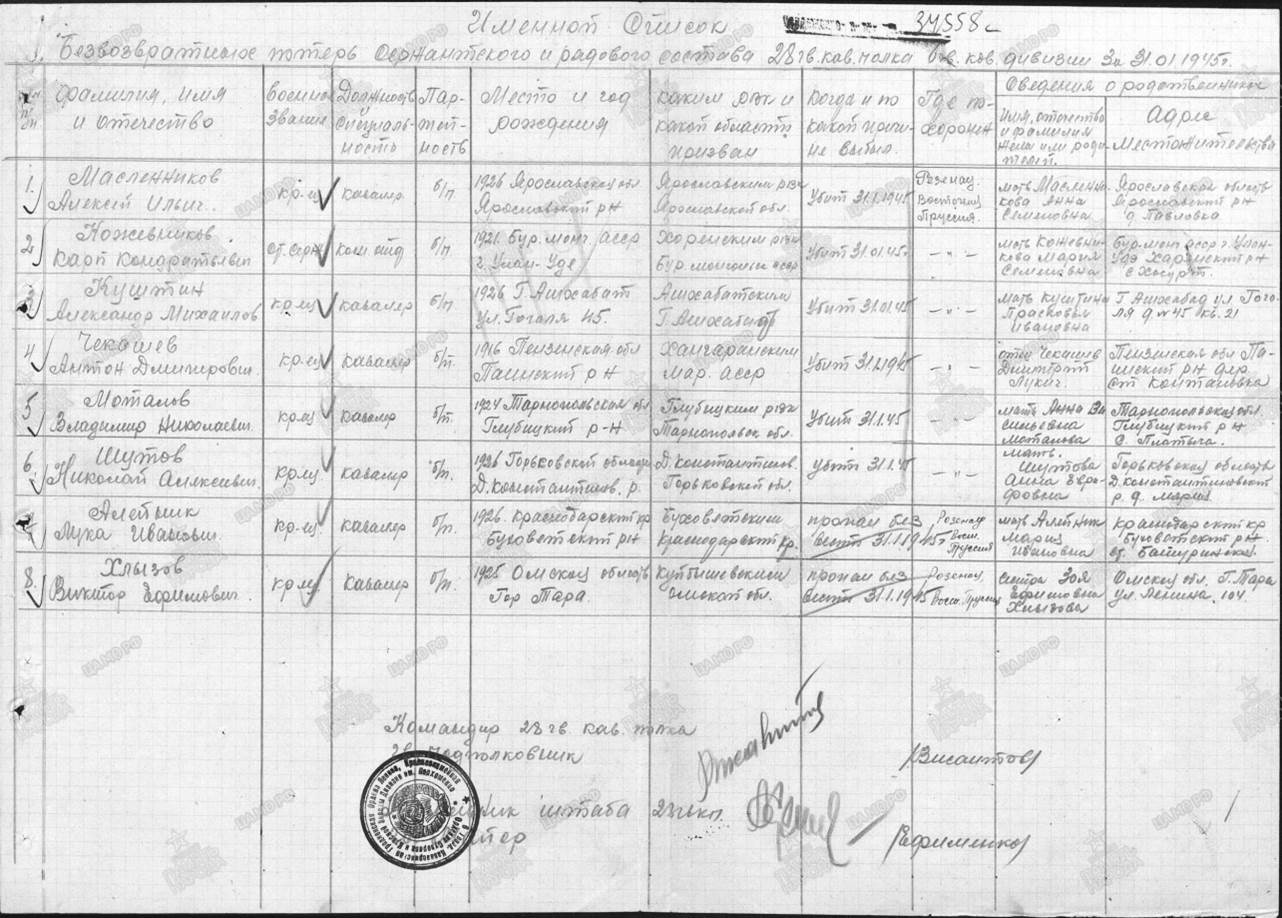 Именной Список
37558с
Безвозвратных потерь Сержантского и рядового состава 28 гв. кав. полка 6 гв. кав. дивизии за 31.01.1945г.
Фамилия, имя и отчество
Военное Звание
Должность и специальность
Партийность
Место и год рождения
Каким рвк и какой области призван
Когда и по какой причине выбыл
Где похоронен
Сведения о родственниках
Имя, отчество и фамилия жены или родителей
Адрес Местожительства
1. Масленников Алексей Ильич.
кр-ец
кавалер
б/п
1926 Ярославская обл Ярославский рн
Ярославским рвк Ярославской обл.
Убит 31.1.1945
Розенау. Восточная Пруссия.
мать Масленникова Анна Семеновна
Ярославская область Ярославский рн д Павловка
2. Кожевников Карп Кондратьевич
ст. серж
ком отд
б/п
1921. Бур. монг. асср г. Улан-Удэ
Хоренским рвк Бур. монголы асср
Убит 31.01.45г
- " -
мать Кожевникова Мария Семеновна
Бур-мон асср г. Улан-Удэ Харенский рн с Хасурт.
3 Куштин Александр Михаилов
кр-ец
кавалер
б/п
1926 Г. Ашхабат ул. Гоголя 45.
Ашхабатским Г. Ашхабат
Убит 31.01.45
- " -
мать Куштина Прасковья Ивановна
Г. Ашхабад ул. Гоголя д № 45 кв. 21
4 Чекашев Антон Дмитриевич.
кр-ец
кавалер
б/п.
1916 Пензенская обл Паинский рн
Хангаранским Мар. асср
Убит 31.1.1945
- " -
отец Чекашев Дмитрий Лукич.
Пензенская обл Паинский рн дер.
5 Моталов Владимир Николаевич.
кр-ец
кавалер
б/п.
1924 Тарнопольская обл Глубицкий р-н
Глубицким рвк Тарнопольск обл.
Убит 31.1.45
- " -
мать Анна Васильевна Моталова
Тарнопольская обл. Глубицкий рн с. Плотыча.
6. Шутов Николай Алексеевич.
кр-ец
кавалер
б/п.
1926 Горьковской области Д. Константинов. р.
Д. Константинов. Горьковской обл.
Убит 31.1.45
- " -
Мать. Шутова Анна Ефрофовна
Горьковская область Д. Константиновский р. д. Мариз
7 Алейник Лука Иванович.
кр-ец
кавалер
б/п.
1926. Краснодарский кр Буковетский рн
Буховетским Краснодарский кр.
пропал без вести 31.1.1945г
Розенау Вост. Пруссия
мать Алейник Мария Ивановна
Краснодарский кр Буковетский рн. ст. Батуринская.
8. Хлызов Виктор Ефимович.
кр-ец
кавалер
б/п.
1925 Омской область Гор Тара.
Куйбышевским Омской обл.
пропал без вести 31.1.1945
Розенау, Вост. Пруссия
сестра Зоя Ефимовна Хлызова
Омской обл. Г. Тара ул. Ленина. 104.
Командир 28 гв. кав. полка
Подполковник
/Висаитов/
штаба 28 гвкп.
/Ефименко/